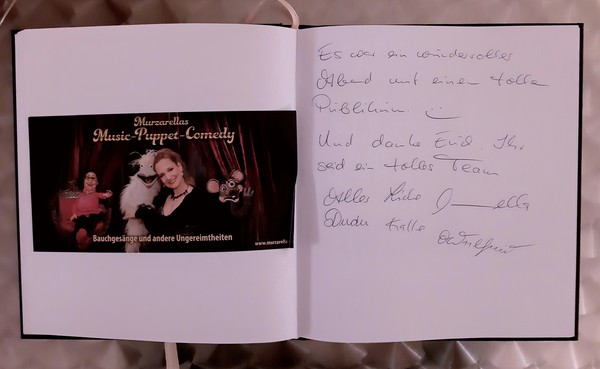 Murzarellas
Music-Puppet-Comedy
Bauchgesänge und andere Ungereimtheiten
www.murzarella
Es war ein wundervoller
Abend mit einem tollen
Publikum
Und danke Euch. Ihr
seid ein tolles Team
Alles Liebe
Dudu Kalle